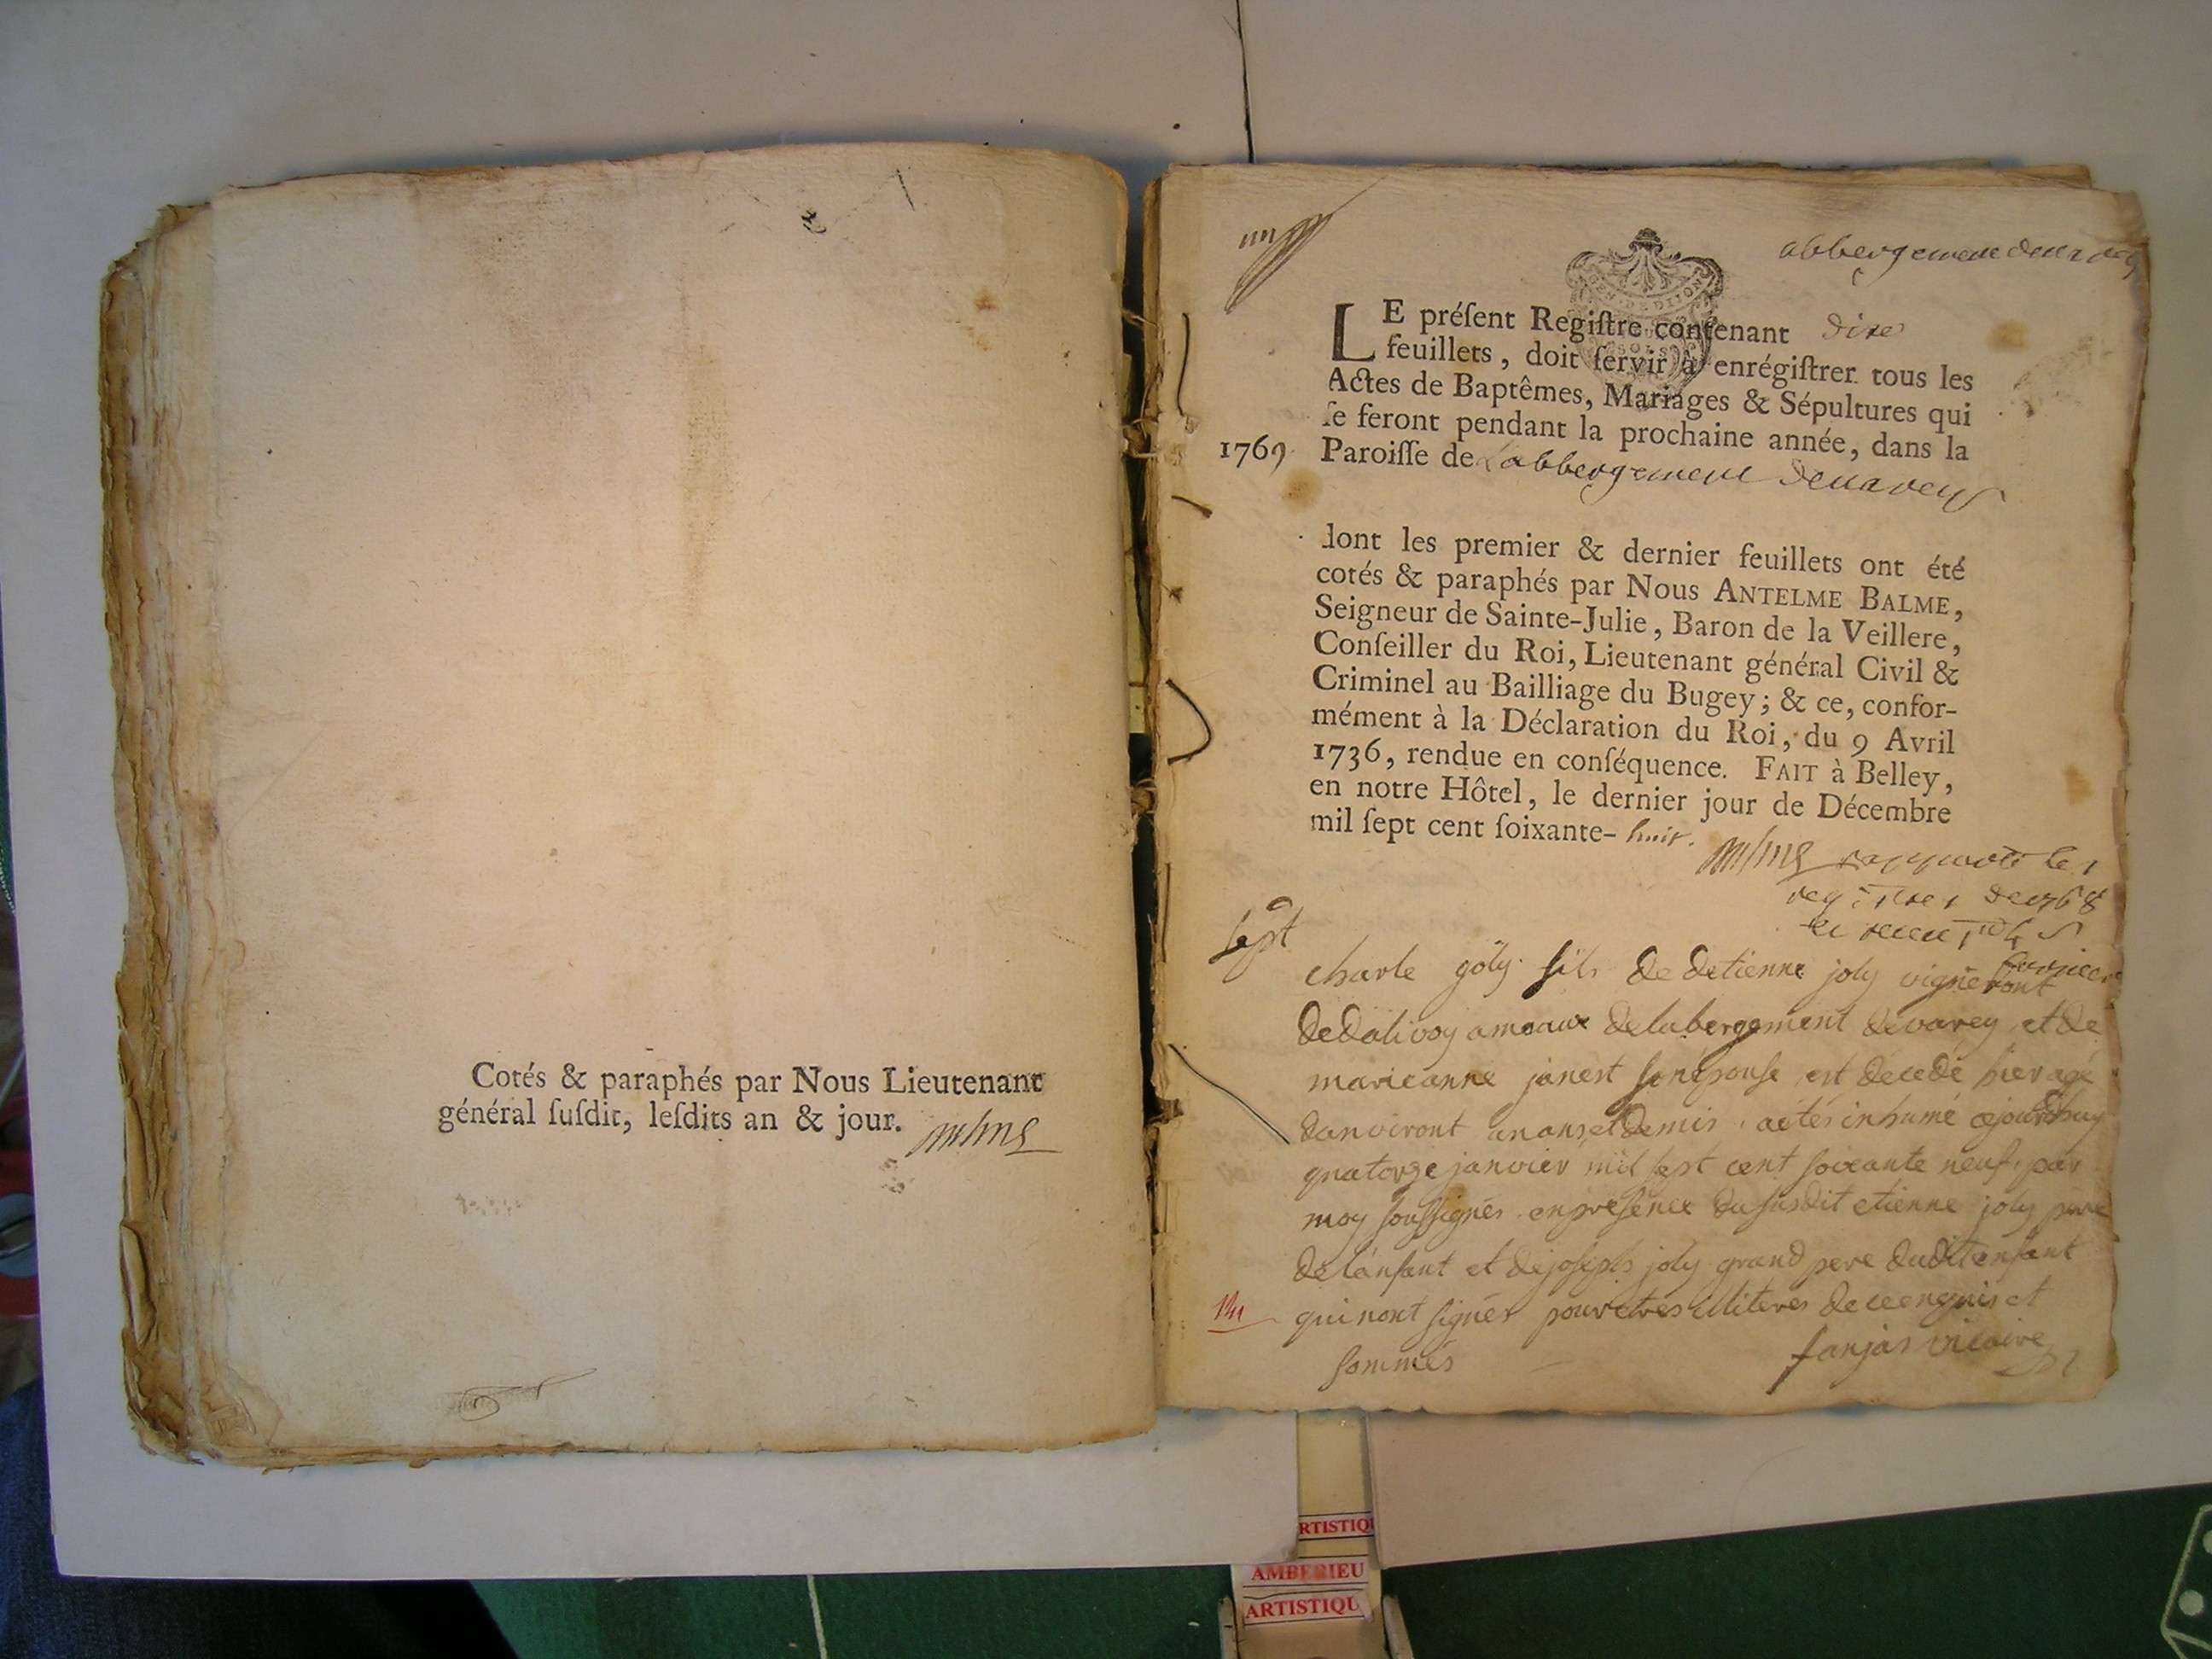 Cotés & paraphés par Nous Lieutenant
général ſuſdit, leſdits an & jour.
un
abbergement
LE préſent Regiſtre contenant dixe
feuillets, doit ſervir à enrégiſtrer tous les
Actes de Baptêmes, Mariages & Sépultures qui
ſe feront pendant la prochaine année, dans la
1769 Paroiſſe de Labbergement devarey
dont les premier & dernier feuillets ont été
cotés & paraphés par Nous ANTELME BALME,
Seigneur de Sainte-Julie, Baron de la Veillere,
Conſeiller du Roi, Lieutenant général Civil &
Criminel au Bailliage du Bugey; & ce, confor-
mément à la Déclaration du Roi, du 9 Avril
1736, rendue en conſéquence. FAIT à Belley,
en notre Hôtel, le dernier jour de Décembre
mil ſept cent ſoixante- huit.
rapporté les
registres de 1768
Sept
charle joly fils de detienne joly vigneront
de dalivoy ameaux de labergement de varey et de
marieanne janest son epouse est decedé hier agé
danviront un ans et demis a étés inhumé cejourdhuy
quatorze janvier mil sept cent soixante neuf par
moy soussignés en presence du susdit etienne joly pere
de lanfant et de joseph joly grand pere dudit enfant
Vu qui nont signés pour etres illiteres de ce enquis et
sommés fanjas vicaire
RTISTIQ
AMBERIEU
ARTISTIQU